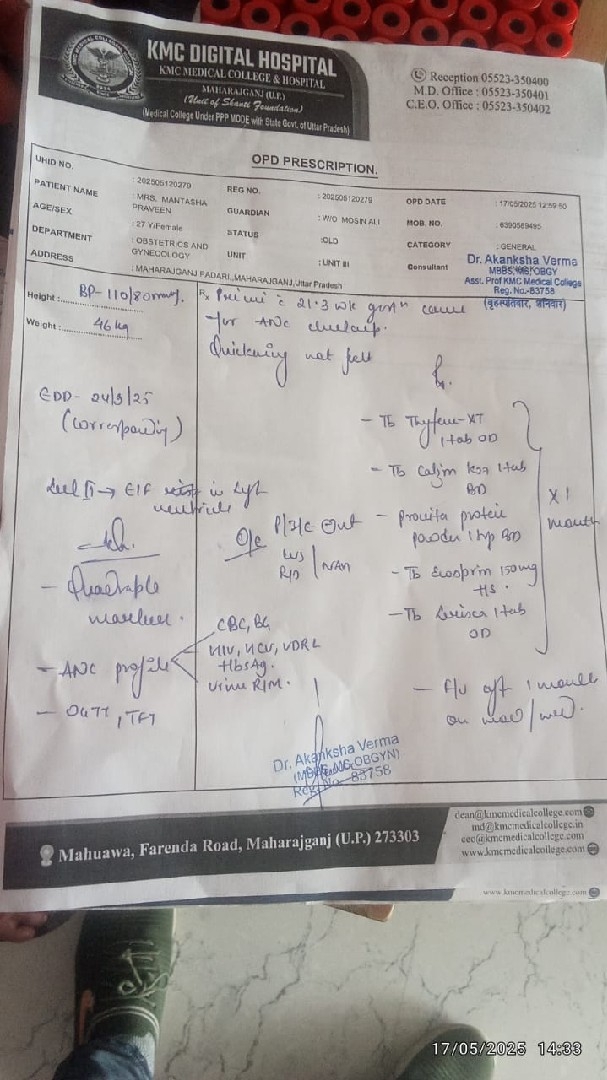 KMC DIGITAL HOSPITAL
KMC MEDICAL COLLEGE & HOSPITAL
MAHARAJGANJ (U.P.)
(Unit of Shanti Foundation)
(Medical College Under PPP MODE with State Govt. of Uttar Pradesh)
Reception 05523-350400
M.D. Office : 05523-350401
C.E.O. Office : 05523-350402
OPD PRESCRIPTION.
UHID NO. : 202505120279 REG NO. : 202505120279 OPD DATE : 17/05/2025
PATIENT NAME : MRS. MANTASHA PRAVEEN GUARDIAN : W/O MOSIN ALI MOB. NO.
AGE/SEX : 27 Y/Female STATUS : OLD CATEGORY : GENERAL
DEPARTMENT : OBSTETRICS AND GYNECOLOGY UNIT : UNIT III Consultant
ADDRESS : MAHARAJGANJ FADARI, MAHARAJGANJ, Uttar Pradesh
Dr. Akanksha Verma
MBBS, MS OBGY
Asst. Prof KMC Medical College
Reg. No.-83758
(बृहस्पतिवार, शनिवार)
Height : BP- 110/80 mmHg.
Weight : 46 kg
Rx Primi c 21.3 wk came
for ANC checkup.
Quickening not felt
EDD- 24/9/25
(corresponding)
EIF in left
ventricle
Adv.
- Quadruple
marker.
- ANC profile
CBC, BG
HIV, HCV, VDRL
HbsAg.
Urine R/M.
- OGTT, TFT
O/E
P/I/C
Rx.
- Tb XT
1 tab OD
- Tb 1 tab
BD
- protein
powder BD
- Tb Ecosprin 150 mg
HS.
- Tb 1 tab
OD
X 1
month
- F/U aft 1 month
on
Dr. Akanksha Verma
(MBBS, MS OBGYN)
Reg. No. 83758
Mahuawa, Farenda Road, Maharajganj (U.P.) 273303
dean@kmcmedicalcollege.com
md@kmcmedicalcollege.in
ceo@kmcmedicalcollege.com
www.kmcmedicalcollege.com
www.kmcmedicalcollege.com
17/05/2025 14:33